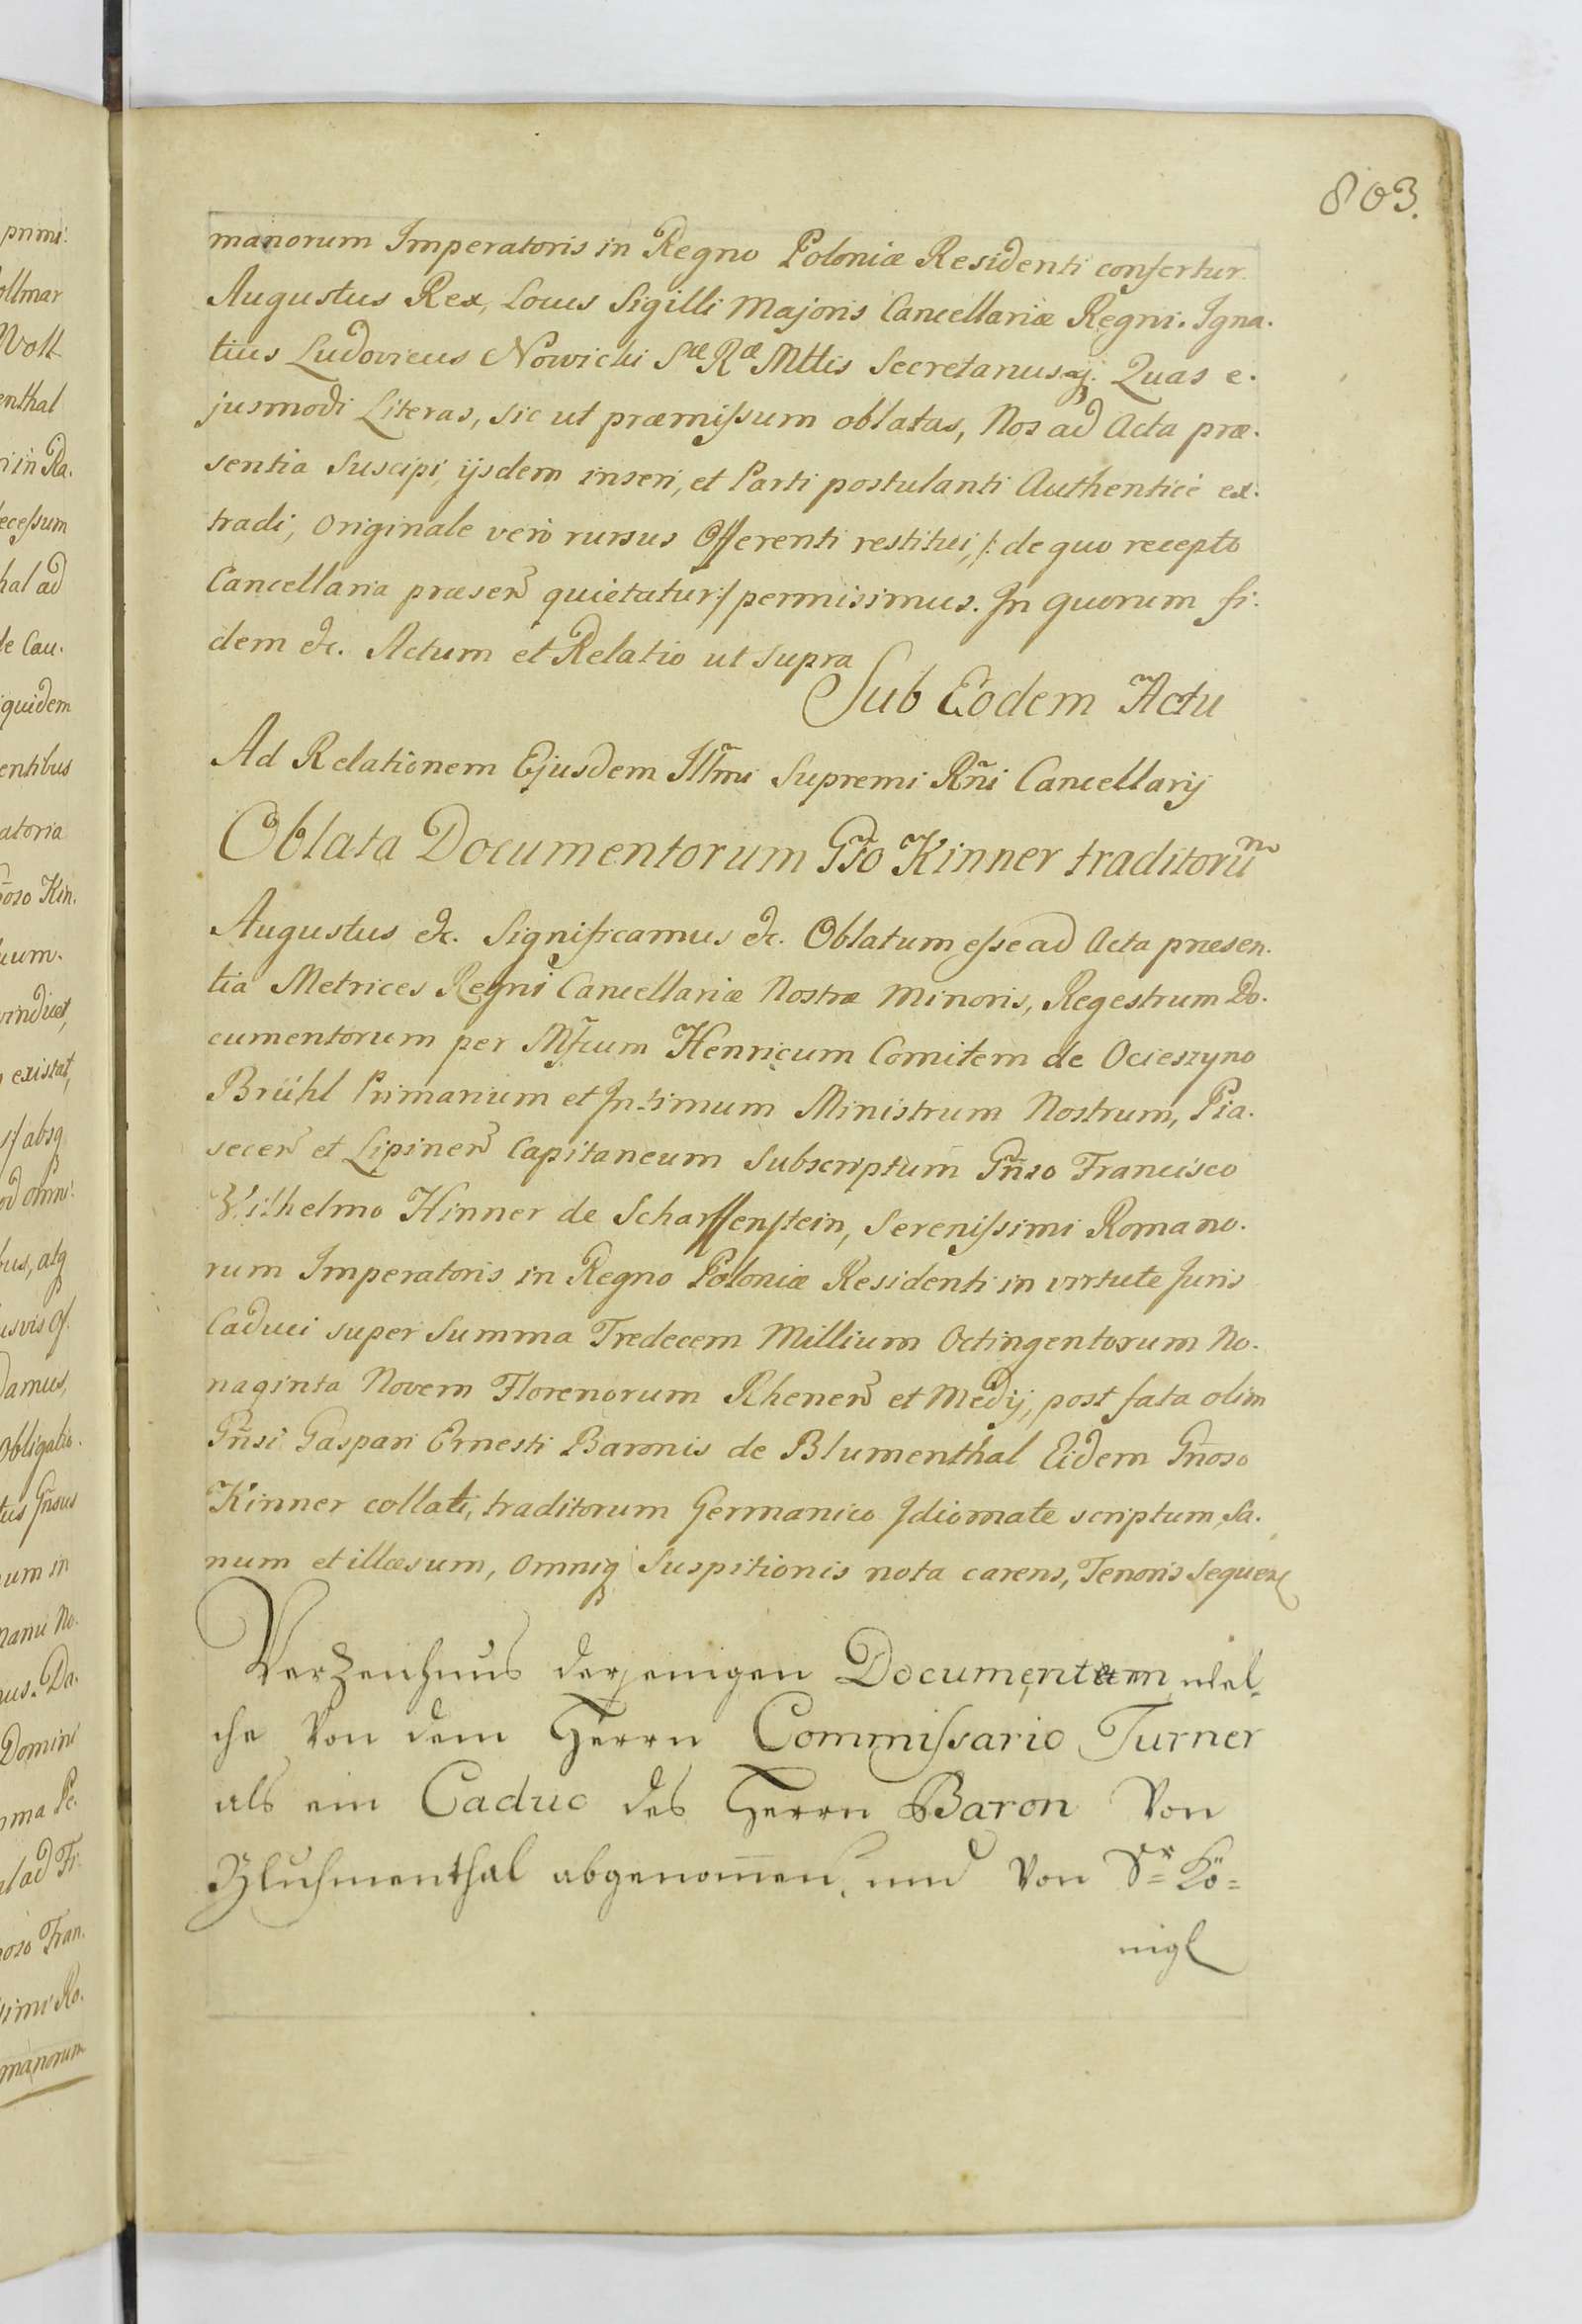 803.
manorum Imperatoris in Regno Poloniæ Residenti confertur.
Augustus Rex, Locus Sigilli Majoris Cancellariæ Regni. Igna.
tius Ludovicus Nowicki Sæ Ræ Mttis Secretarius. Quas e.
jusmodi Literas, sic ut præmissum oblatas, Nos ad Acta præ.
sentia Suscipi, ijsdem inseri, et Parti postulanti Authenticè ex.
tradi, Originale verò rursus Offerenti restitui, /: de quo recepto
Cancellaria præsen̄ quietatur :/ permisimus. In quorum fi.
dem &c. Actum et Relatio ut supra
Sub Eodem Actu
Ad Relationem Ejusdem Illm̃i Supremi Rñi Cancellarij
Oblata Documentorum Gñso Kinner traditorum
Augustus &c. Significamus &c. Oblatum esse ad Acta præsen.
tia Metrices Regni Cancellariæ Nostræ Minoris, Regestrum Do.
cumentorum per Mf̃cum Henricum Comitem de Ocieszyno
Brühl Primarium et Intimum Ministrum Nostrum, Pia.
secen̄ et Lipinen̄ Capitaneum Subscriptum Gñso Francisco
Wilhelmo Kinner de Scharffenstein, Serenissimi Romano.
rum Imperatoris in Regno Poloniæ Residenti in virtute Juris
Caduci super Summa Tredecem Millium Octingentorum No.
naginta Novem Florenorum Rhenen̄ et Medij, post fata olim
Gñsi Gaspari Ernesti Baronis de Blumenthal Eidem Gñoso
Kinner collati, traditorum Germanico Idiomate scriptum, Sa.
num et illæsum, Omniq́ Suspitionis nota carens, Tenoris sequen̄
Verzeichnus derjenigen Documenten, wel-
che Von dem Herrn Commissario Turner
als ein Caduc des Herrn Baron Von
Bluhmenthal abgenom̄en, und Von Sr= Kö=
nigl